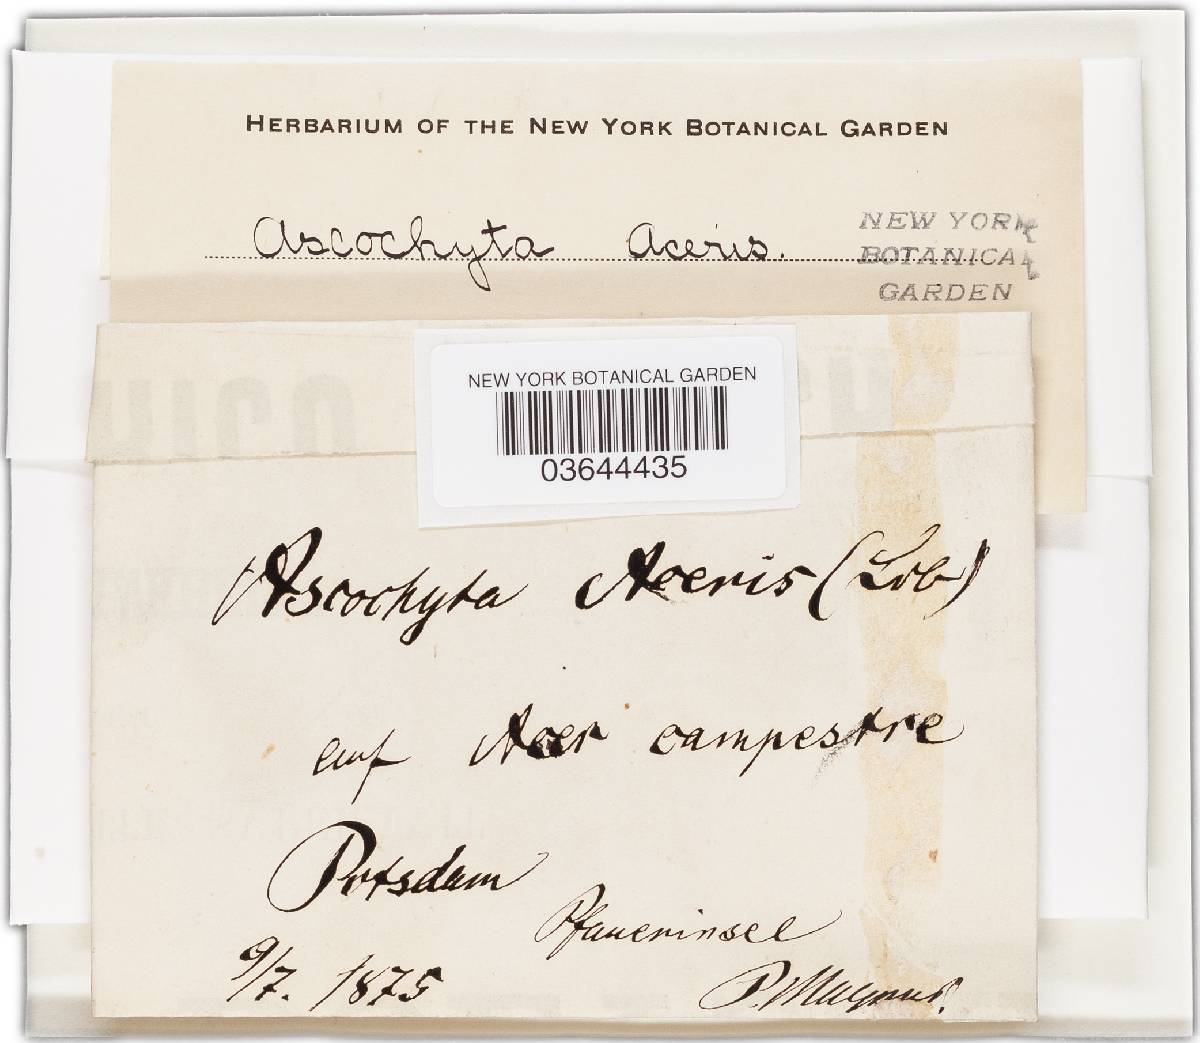 HERBARIUM OF THE NEW YORK BOTANICAL GARDEN
Ascochyta Aceris.
NEW YORK
BOTANICAL
GARDEN
NEW YORK BOTANICAL GARDEN
03644435
Ascochyta Aceris (Lib)
auf Acer campestre
Potsdam
Pfaueninsel
9/7. 1875
P. Magnus.